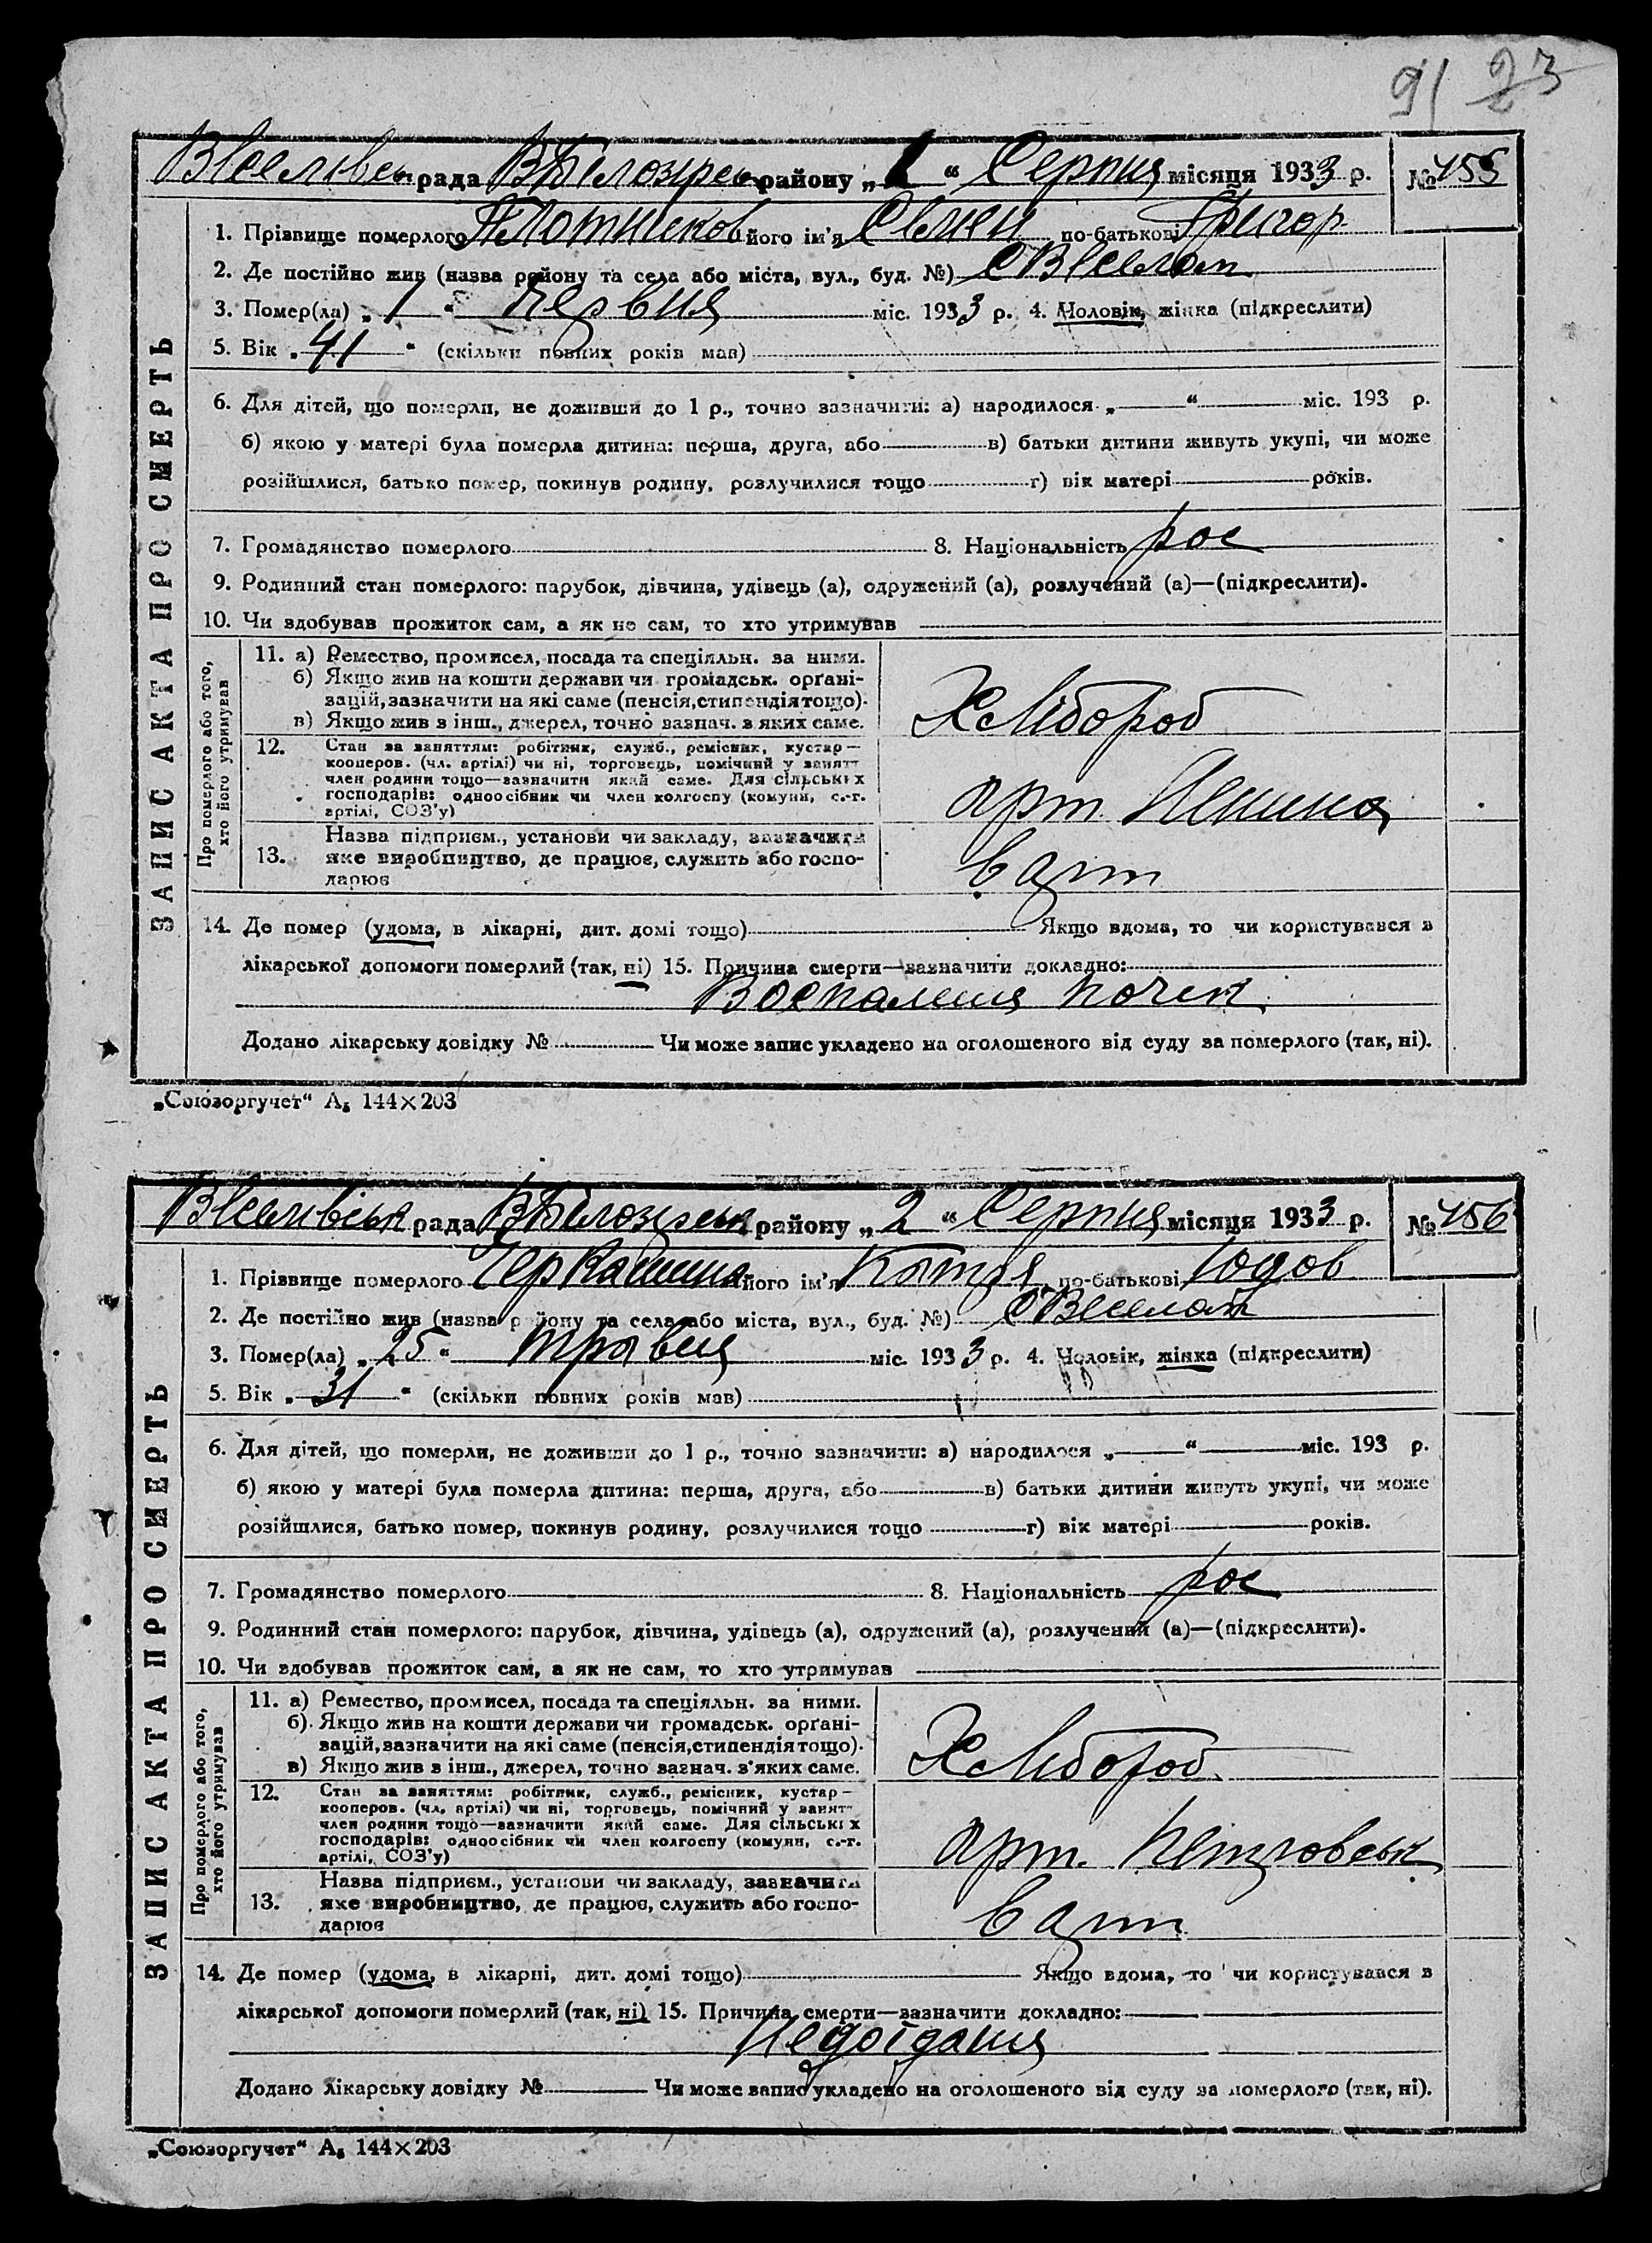 91 23
Веселівськ рада ВБілозірськ району „1“ Серпня місяця 1933 р. № 455
1. Прізвище померлого Плотников його ім'я Семен по-батькові Григор
2. Де постійно жив (назва району та села або міста, вул., буд. №) с Веселом
3. Помер(ла) „1“ червня міс. 1933 р. 4. Чоловік, жінка (підкреслити)
5. Вік „41“ (скільки повних років мав)
6. Для дітей, що померли, не доживши до 1 р., точно зазначити: а) народилося „ “ міс. 193 р.
б) якою у матері була померла дитина: перша, друга, або в) батьки дитини живуть укупі, чи може
розійшлися, батько помер, покинув родину, розлучилися тощо г) вік матері років.
7. Громадянство померлого 8. Національність рос
9. Родинний стан померлого: парубок, дівчина, удівець (а), одружений (а), розлучений (а)—(підкреслити).
10. Чи здобував прожиток сам, а як не сам, то хто утримував
ЗАПИС АКТА ПРО СМЕРТЬ
Про померлого або того,
хто його утримував
11. а) Ремество, промисел, посада та спеціяльн. за ними.
б) Якщо жив на кошти держави чи громадськ. орґані-
зацій, зазначити на які саме (пенсія, стипендія тощо).
в) Якщо жив з інш., джерел, точно зазнач. з яких саме.
Хлібороб
12. Стан за заняттям: робітник, служб., ремісник, кустар—
кооперов. (чл. артілі) чи ні, торговець, помічний у занятт
член родини тощо—зазначити який саме. Для сільських
господарів: одноосібник чи член колгоспу (комуни, с.-г.
артілі, СОЗ'у)
арт. Ленина
Назва підприєм., установи чи закладу, зазначити
13. яке виробництво, де працює, служить або госпо-
дарює
14. Де помер (удома, в лікарні, дит. домі тощо) Якщо вдома, то чи користувався з
лікарської допомоги померлий (так, ні) 15. Причина смерти—зазначити докладно:
Воспаления почек
Додано лікарську довідку № Чи може запис укладено на оголошеного від суду за померлого (так, ні).
„Союзоргучет“ А₅ 144×203
Веселівськ рада ВБілозірськ району „2“ Серпня місяця 1933 р. № 456
1. Прізвище померлого Черкашина його ім'я Катря по-батькові
2. Де постійно жив (назва району та села або міста, вул., буд. №) с Веселом
3. Помер(ла) „25“ травня міс. 1933 р. 4. Чоловік, жінка (підкреслити)
5. Вік „31“ (скільки повних років мав)
6. Для дітей, що померли, не доживши до 1 р., точно зазначити: а) народилося „ “ міс. 193 р.
б) якою у матері була померла дитина: перша, друга, або в) батьки дитини живуть укупі, чи може
розійшлися, батько помер, покинув родину, розлучилися тощо г) вік матері років.
7. Громадянство померлого 8. Національність рос
9. Родинний стан померлого: парубок, дівчина, удівець (а), одружений (а), розлучений (а)—(підкреслити).
10. Чи здобував прожиток сам, а як не сам, то хто утримував
ЗАПИС АКТА ПРО СМЕРТЬ
Про померлого або того,
хто його утримував
11. а) Ремество, промисел, посада та спеціяльн. за ними.
б). Якщо жив на кошти держави чи громадськ. орґані-
зацій, зазначити на які саме (пенсія, стипендія тощо).
в) Якщо жив з інш., джерел, точно зазнач. з'яких саме.
Хлібороб
12. Стан за заняттям: робітник, служб., ремісник, кустар—
кооперов. (чл. артілі) чи ні, торговець, помічний у занятт
член родини тощо—зазначити який саме. Для сільських
господарів: одноосібник чи член колгоспу (комуни, с.-г.
артілі, СОЗ'у)
арт. Петровськ
Назва підприєм., установи чи закладу, зазначити
13. яке виробництво, де працює, служить або госпо-
дарює
14. Де помер (удома, в лікарні, дит. домі тощо) Якщо вдома, то чи користувався з
лікарської допомоги померлий (так, ні) 15. Причина смерти—зазначити докладно:
Недоїдання
Додано лікарську довідку № Чи може запис укладено на оголошеного від суду за померлого (так, ні).
„Союзоргучет“ А₅ 144×203